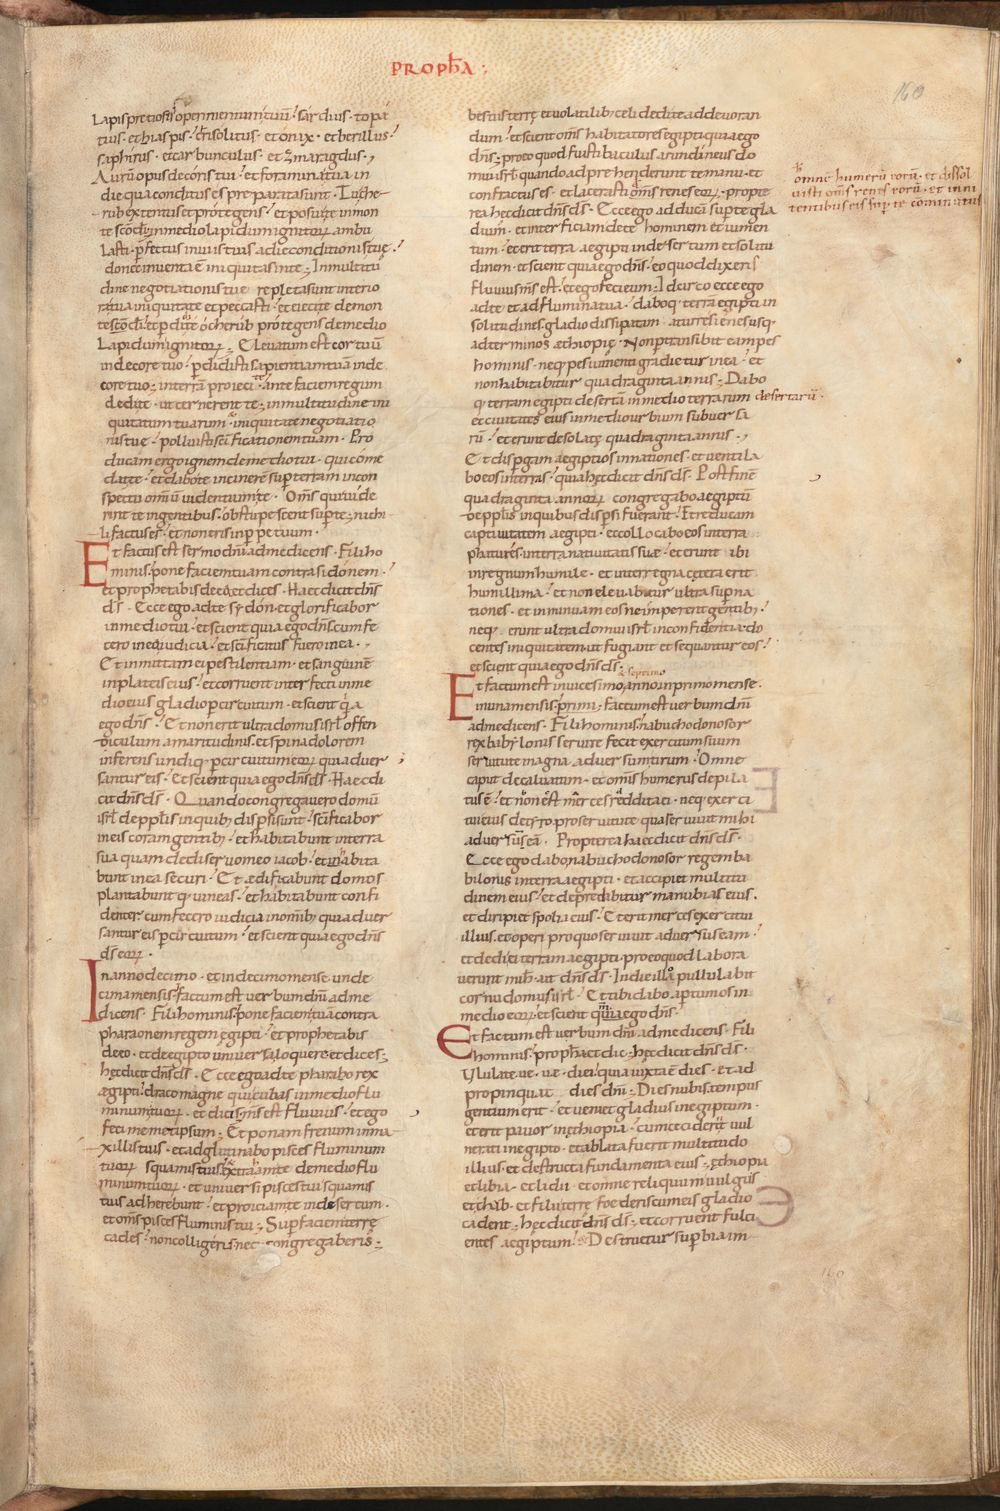 PROPhA :
160
Lapis pretiosus operimentum tuum. sardius. topa
tius. et hiaspis. chrisolitus. et onix. et berillus.
saphirus. et carbunculus. et zmaragdus.
Aurū opus decoris tui. et foramina tua in
die qua conditus es preparata sunt. Tu che
rub extentus et protegens. et posui te in mon
te sc̄o dī in medio lapidum ignitorum ambu
lasti. p̄fectus in viis tuis a die conditionis tuę.
donec inventa ē iniquitas in te. In multitu
dine negotiationis tuę repleta sunt interio
ra tua iniquitate et peccasti. et eieci te de mon
te sc̄o dī. et p̄didi te o cherub protegens de medio
lapidum ignitorum. Elevatum est cor tuū
in decore tuo. p̄didisti sapientiam tuā in de
core tuo. in terrā proieci te. ante faciem regum
dedi te. ut cernerent te. in multitudine ini
quitatum tuarum. iniquitate negotiatio
nis tuę. polluisti sc̄ificationem tuam. Pro
ducam ergo ignem de medio tui. qui come
dat te. et dabo te in cinerē sup̄ terram in con
spectu om̄iū videntium te. Om̄s qui vide
rint te in gentibus. obstupescent sup̄ te. nichi
li factus es. et non eris in p̄petuum.
Et factus est sermo dn̄i ad me dicens. Fili ho
minis. pone faciem tuam contra sidonem.
et prophetabis de ea et dices. Haec dicit dn̄s
ds̄. Ecce ego ad te sydon. et glorificabor
in medio tui. et scient quia ego dn̄s. cum fe
cero in ea iudicia. et sc̄ificatus fuero in ea.
Et inmittam ei pestilentiam. et sanguinē
in plateis eius. et corruent interfecti in me
dio eius gladio p̄ circuitum. et scient q̄a
ego dn̄s. Et non erit ultra domus isrl̄ offen
diculum amaritudinis. et spina dolorem
inferens undiq; p̄ circuitum eorum qui adver
santur eis. Et scient quia ego dn̄s ds̄. Haec di
cit dn̄s ds̄. Quando congregavero domū
isrl̄ de pp̄lis in quib; disp̄si sunt. sc̄ificabor
in eis coram gentib; et habitabunt in terra
sua quam dedi servo meo iacob. et habita
bunt in ea securi. Et ædificabunt domos
plantabunt q; vineas. et habitabunt confi
denter. cum fecero iudicia in om̄ib; qui adver
santur eis p̄ circuitum. et scient quia ego dn̄s
ds̄ eorum.
In anno decimo. et in decimo mense. unde
cima mensis. factum est verbum dn̄i ad me
dicens. Fili hominis. pone faciem tuā contra
pharaonem regem ęgipti. et prophetabis
de eo. et de egipto universa. loquere et dices.
hęc dicit dn̄s ds̄. Ecce ego ad te pharao rex
ægipti. draco magne qui cubas in medio flu
minum tuorum. et dicis. m̄s est fluvius. et ego
feci memetipsum. Et ponam frenum in ma
xillis tuis. et adglutinabo pisces fluminum
tuorum squamis tuis. et extraam te de medio flu
minum tuorum. et universi pisces tui squamis
tuis adherebunt. et proiciam te in desertum.
et om̄s pisces fluminis tui. Sup̄ faciem terrę
cades. non colligeris nec congregaberis.
bestiis terrę et volatilib; cęli dedi te ad devoran
dum. et scient om̄s habitatores egipti quia ego
dn̄s. pro eo quod fuisti baculus arundineus do
mui isrl̄. quando adprehenderunt te manu. et
confractus es. et lacerasti om̄s renes eorum. propte
rea hęc dicit dn̄s ds̄. Ecce ego adducā sup̄ te gla
dium. et interficiam de te hominem et iumen
tum. et erit terra ægipti in desertum et solitu
dinem. et scient quia ego dn̄s. eo quod dixeris
fluvius m̄s est. et ego feci eum. Idcirco ecce ego
ad te et ad flumina tua. dabo q; terrā egipti in
solitudines gladio dissipatam. a turre sienes usq;
ad terminos æthiopię. Non p̄transibit eam pes
hominis. neq; pes iumenti gradietur in ea. et
non habitabitur quadraginta annis. Dabo
q; terram egipti desertā in medio terrarum desertarū.
et civitates eius in medio urbium subversa
rū. et erunt desolatę quadraginta annis.
Et disp̄gam aegiptios in nationes. et ventila
bo eos in terras. quia hęc dicit dn̄s ds̄. Post finē
quadraginta annorum congregabo aegiptū
de pp̄lis in quibus disp̄si fuerant. Et reducam
captivitatem aegipti. et collocabo eos in terra
phatures. in terra nativitatis suę. et erunt ibi
in regnum humile. et inter regna cętera erit
humillima. et non elevabitur ultra sup̄ na
tiones. et inminuam eos ne imperent gentib;
neq; erunt ultra domui isrl̄ in confidentia. do
centes iniquitatem. ut fugiant et sequantur eos.
et scient quia ego dn̄s ds̄.
Et factum est in vicesimo septimo anno. in primo mense.
in una mensis. primi. factum est verbum dn̄i
ad me dicens. Fili hominis. nabuchodonosor
rex babylonis servire fecit exercitum suum
servitute magna adversum tirum. Omne
caput decalvatum. et om̄is humerus depila
tus ē. et non est m̄erces reddita ei. neq; exerci
tui eius de tyro. pro servitute qua servivit mihi
adversus eā. Propterea haec dicit dn̄s ds̄.
Ecce ego dabo nabuchodonosor regem ba
bilonis in terra aegipti. et accipiet multitu
dinem eius. et depredabitur manubias eius.
et diripiet spolia eius. Et erit merces exercitui
illius. et operi pro quo servivit adversus eam.
et dedi ei terram aegipti. pro eo quod labora
verunt mihi. ait dn̄s ds̄. In die illo pullulabit
cornu domui isrl̄. Et tibi dabo aptum os in
medio eorum. et scient quia ego dn̄s.
Et factum est verbum dn̄i ad me dicens. Fili
hominis. prophæta et dic. hęc dicit dn̄s ds̄.
Ululate. vę. vę. diei. quia iuxta ē dies. et ad
propinquat dies dn̄i. Dies nubis. tempus
gentium erit. et veniet gladius in egiptum.
et erit pavor in ęthiopia. cum ceciderint vul
nerati in egipto. et ablata fuerit multitudo
illius. et destructa fundamenta eius. ęthiopia
et libia. et lidii. et omne reliquum vulgus
et chub. et filii terrę foederis cum eis gladio
cadent. hęc dicit dn̄s ds̄. et corruent fulci
entes aegiptum. Destruetur sup̄bia im
omnē humerū eorū. et dissol
visti om̄s renes eorū. et inni
tentibus eis sup̄ te cominutus
160